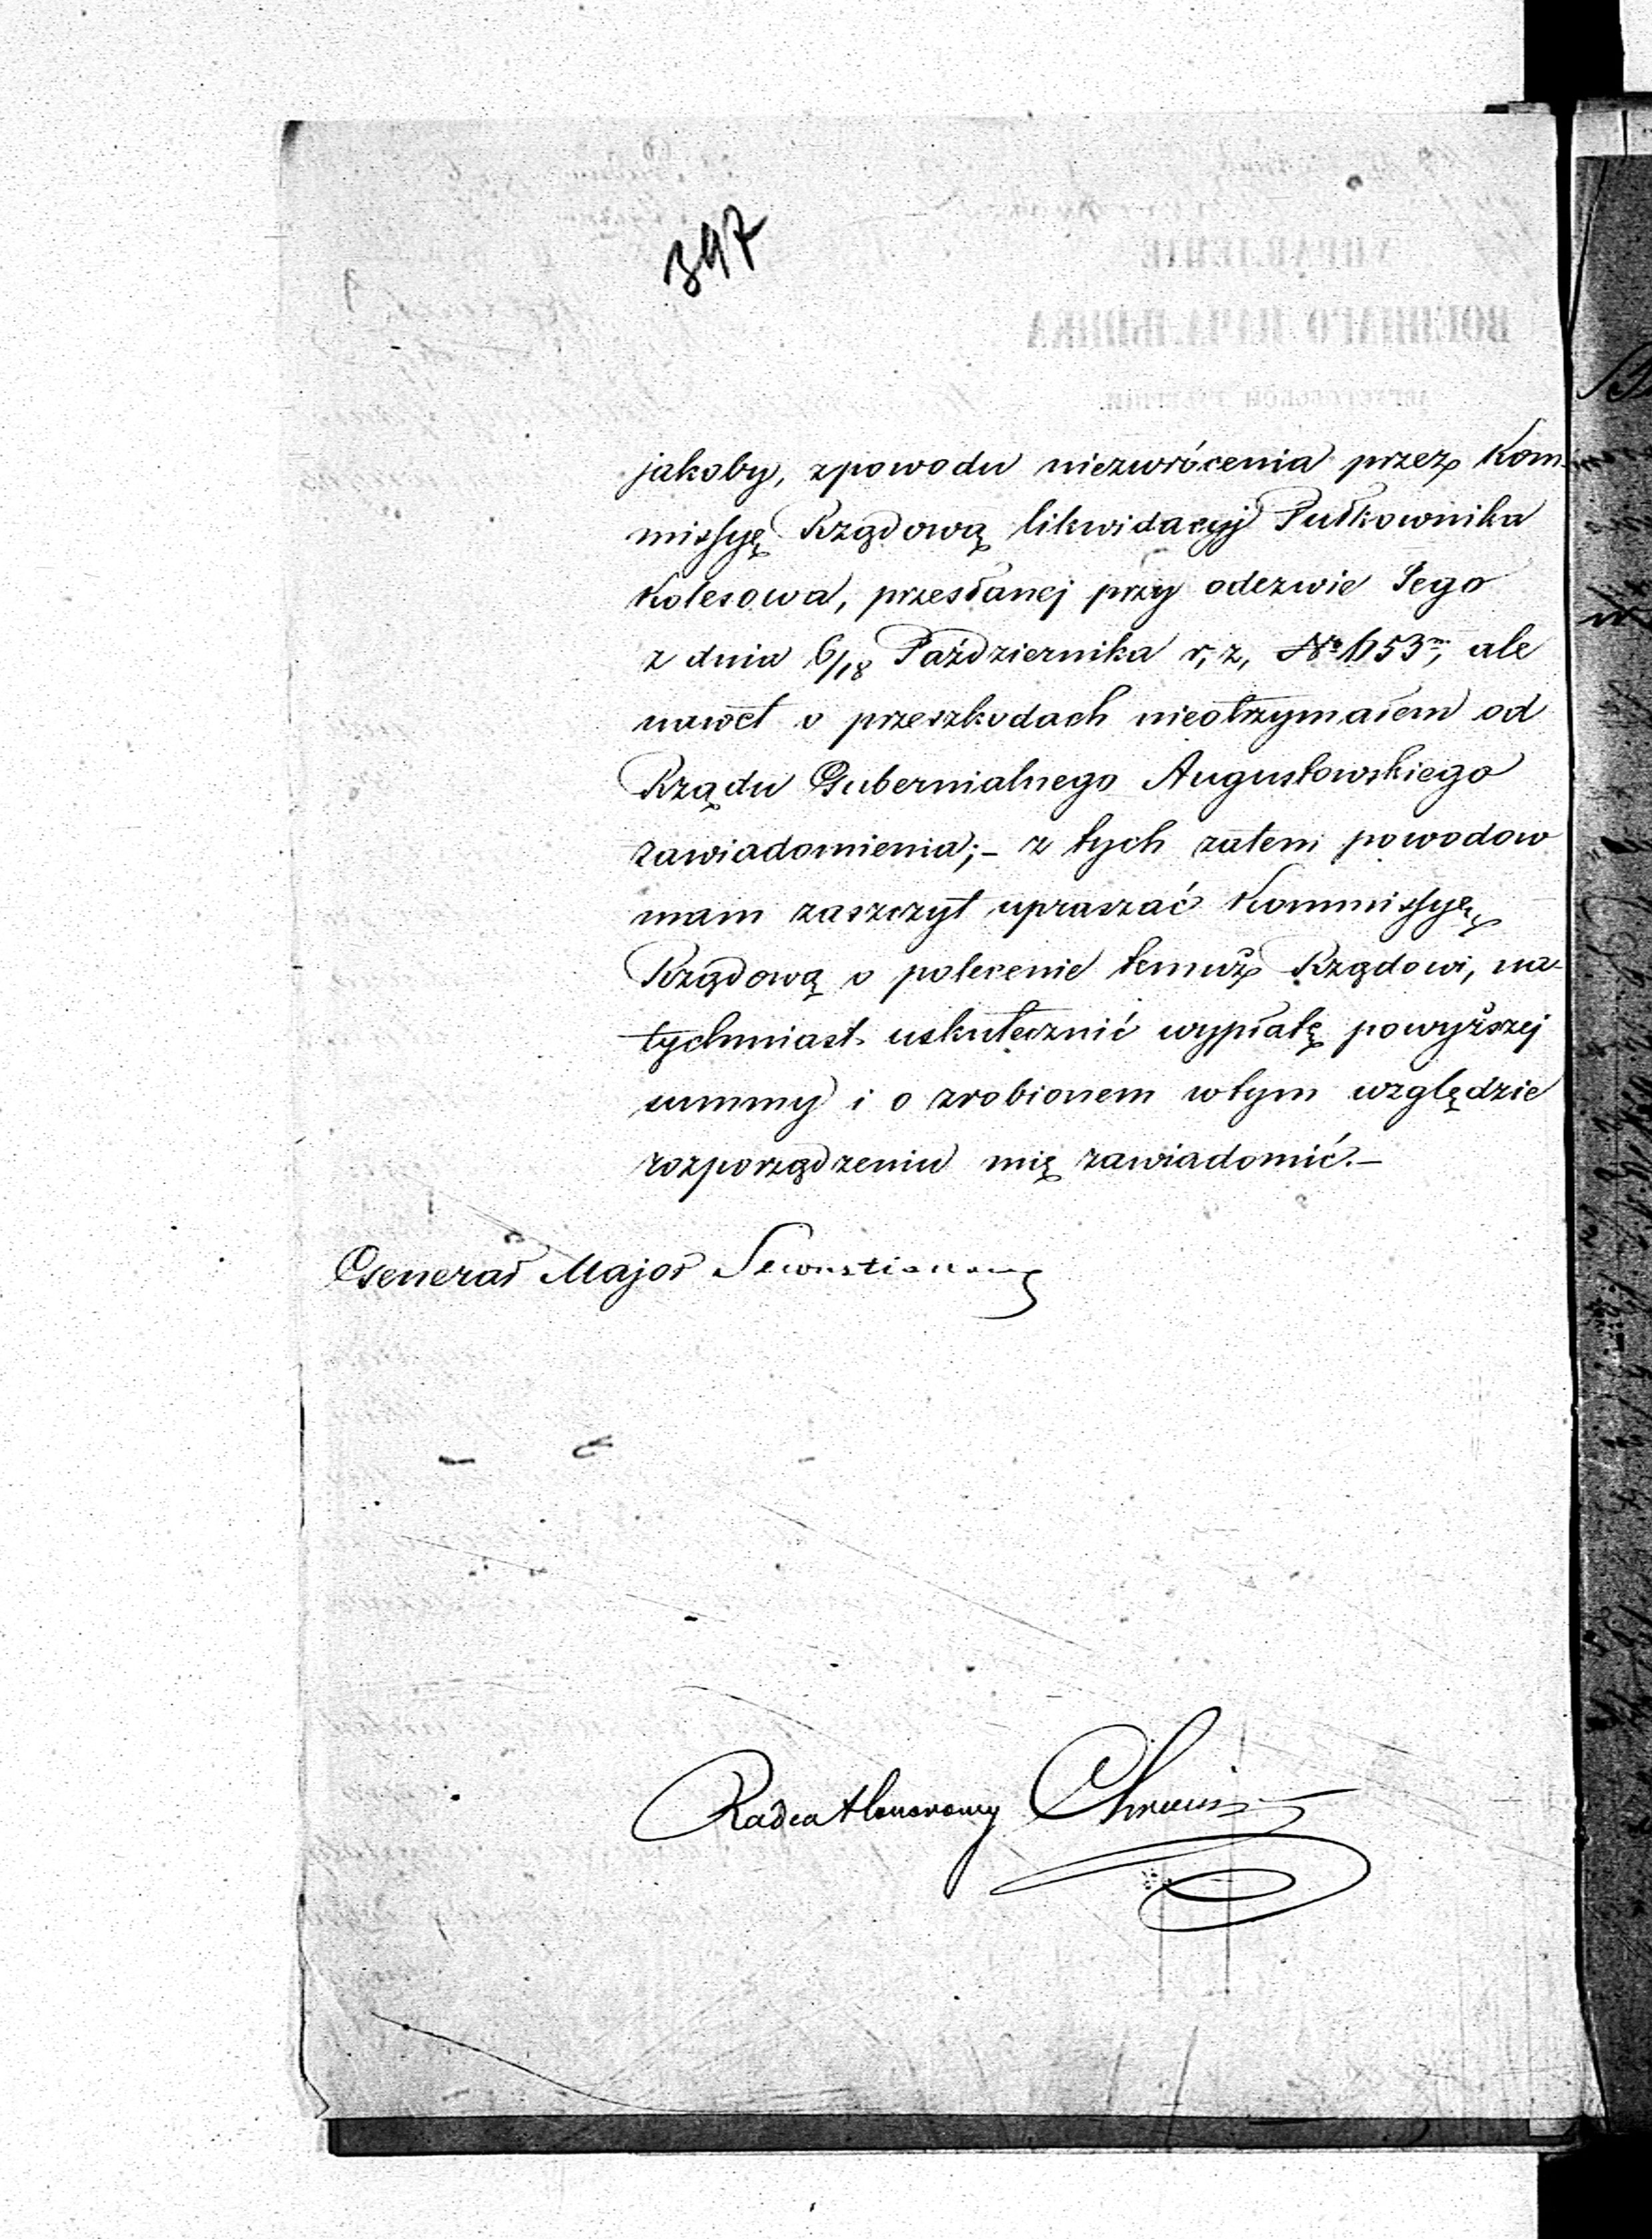 347
jakoby, zpowodu niezwrócenia przez Kom-
missyę Rządową likwidacyj Pułkownika
Kolesowa, przesłanej przy odezwie Jego
z dnia 6/18 Października r, z, ale
nawet o przeszkodach nieotrzymałem od
Rządu Gubernialnego Augustowskiego
zawiadomienia;- z tych zatem powodow
mam zaszczyt upraszać Kommissyę
Rządową o polecenie temuż Rządowi, na-
tychmiast uskutecznić wypłatę powyższej
summy i o zrobionem wtym względzie
rozporządzeniu mię zawiadomić.-
Generał Major
Radca Honorowy